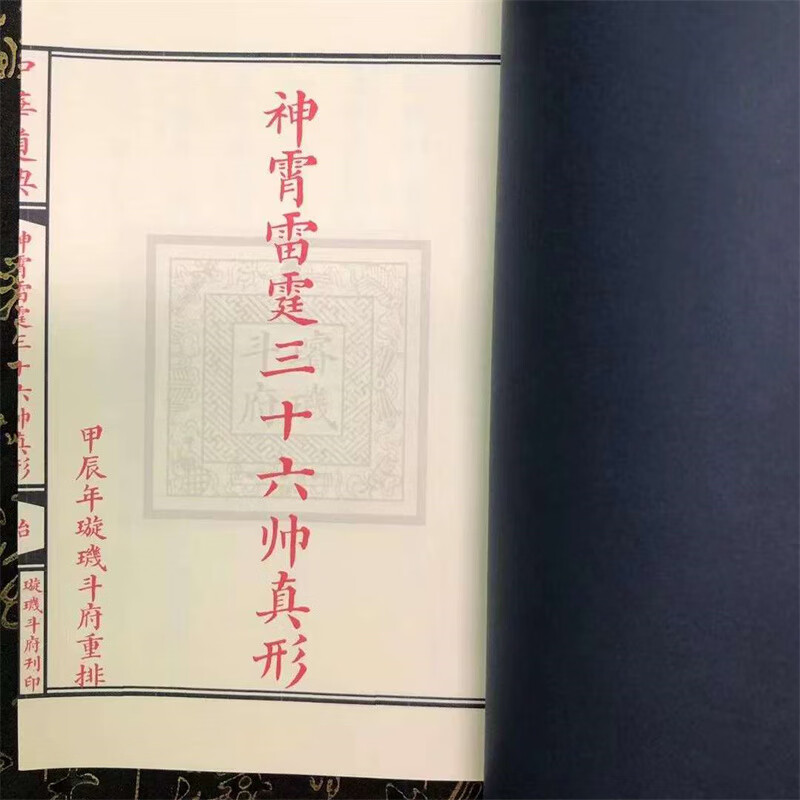 神霄雷霆三十六帅真形
甲辰年璇璣斗府重排
華道典
神霄雷霆三十六帅真形
璇璣斗府刊印
璿璣
斗府